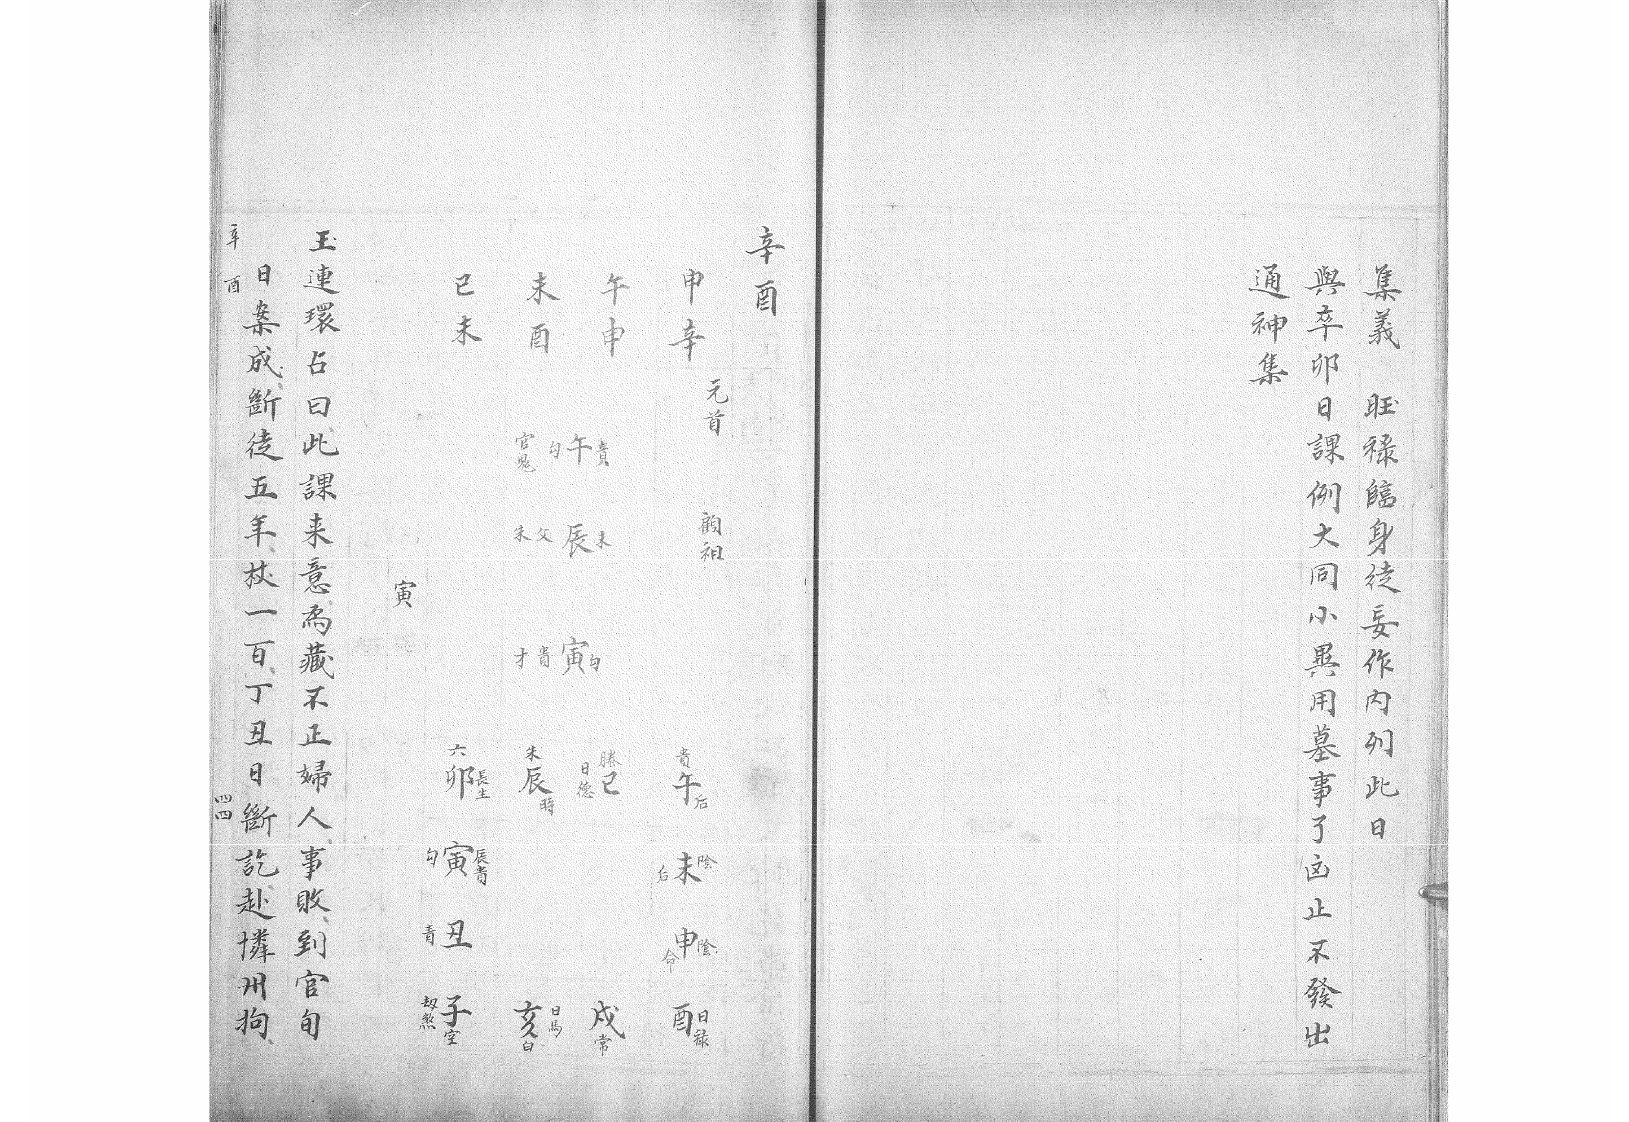 集義　旺祿臨身徒妄作內列此日
與辛卯日課例大同小異用墓事了凶止不發出
通神集
辛酉
元首　顧祖
申辛
午申
未酉
巳未
官鬼 勾午貴
朱父 辰朱
才貴 寅勾
貴午后
陰未后
陰申命
酉日祿
螣巳日德
戌常
朱辰時
亥日馬白
六卯長生
勾寅辰貴
青丑
劫煞子空
寅
玉連環占曰此課来意為藏不正婦人事敗到官旬
日案成斷徒五年杖一百丁丑日斷訖赴憐州拘
辛酉
四四